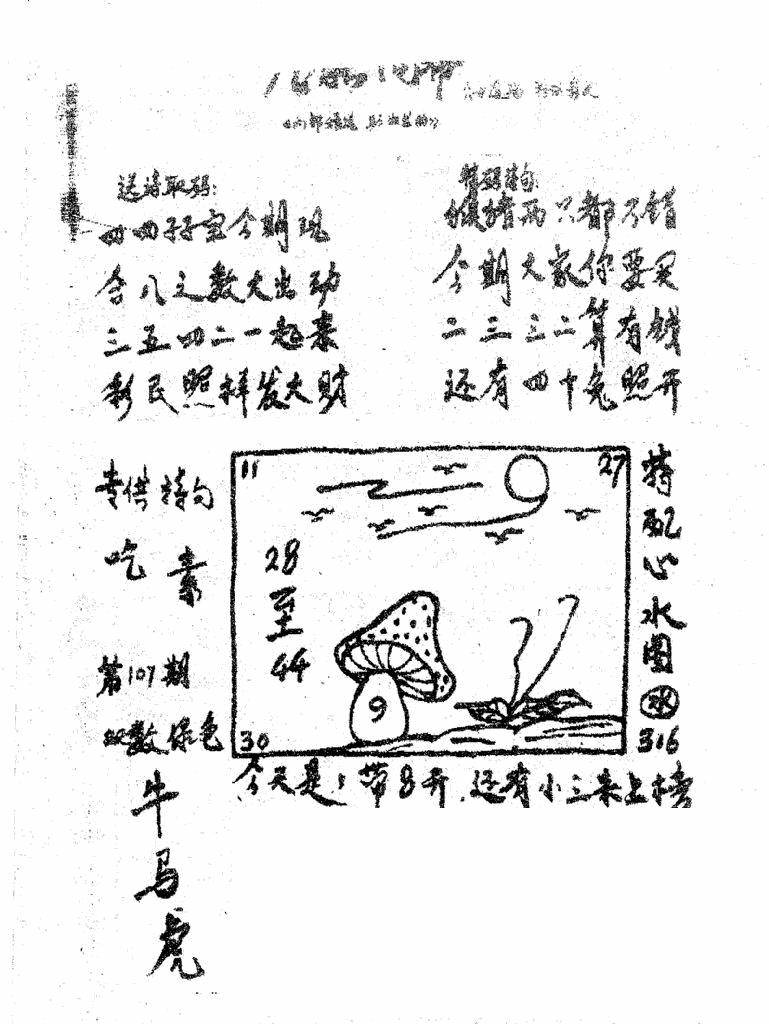 送诗取码:
四四子宝今期现
合八之数大出动
三五四二一起来
彩民照样发大财
猴猪两只都不错
今期大家你要买
二三三二算有钱
还有四十兔照开
专供特句
吃素
第107期
双数绿色
牛
马
虎
11
27
28
至
44
9
30
特配心水图
316
今天是:带8开.还有小三来上榜